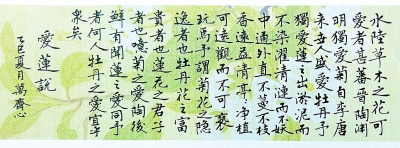 水陸草木之花可
愛者善蕃晉陶淵
明獨愛菊自李唐
来世人盛愛牡丹予
獨愛蓮之出淤泥而
不染濯清漣而不妖
中通外直不蔓不枝
香遠益清亭亭净植
可遠觀而不可褻
玩焉予謂菊花之隐
逸者也牡丹花之富
貴者也蓮花之君子
者也噫菊之愛陶後
鮮有聞蓮之愛同予
者何人牡丹之愛宜乎
衆矣
愛蓮說
乙巳夏月萬齊心